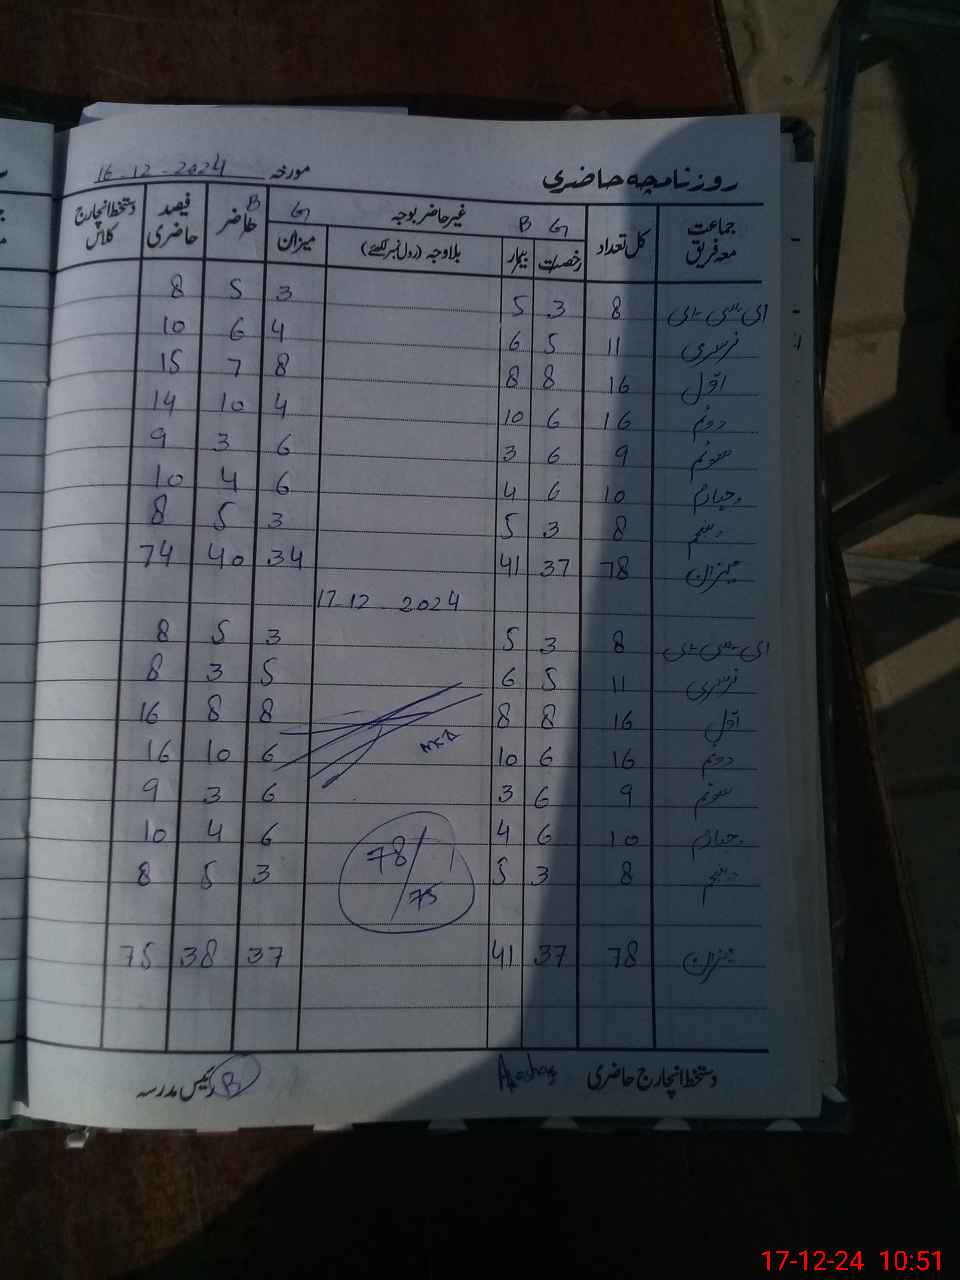 روزنامچہ حاضری مورخہ 16-12-2024
جماعت معہ فریق کل تعداد G رخصت B بیمار غیر حاضر بوجہ بلاوجہ (رول نمبر لکھئے) G میزان B حاضر فیصد حاضری دستخط انچارج کلاس
ای سی ای 8 3 5 3 5 8
نرسری 11 5 6 4 6 10
اول 16 8 8 8 7 15
دوئم 16 6 10 4 10 14
سوئم 9 6 3 6 3 9
چہارم 10 6 4 6 4 10
پنجم 8 3 5 3 5 8
میزان 78 37 41 34 40 74
17-12-2024
ای سی ای 8 3 5 3 5 8
نرسری 11 5 6 5 3 8
اول 16 8 8 8 8 16
دوئم 16 6 10 6 10 16
سوئم 9 6 3 6 3 9
چہارم 10 6 4 6 4 10
پنجم 8 3 5 3 5 8
78/75
میزان 78 37 41 37 38 75
دستخط انچارج حاضری رئیس مدرسہ
17-12-24 10:51